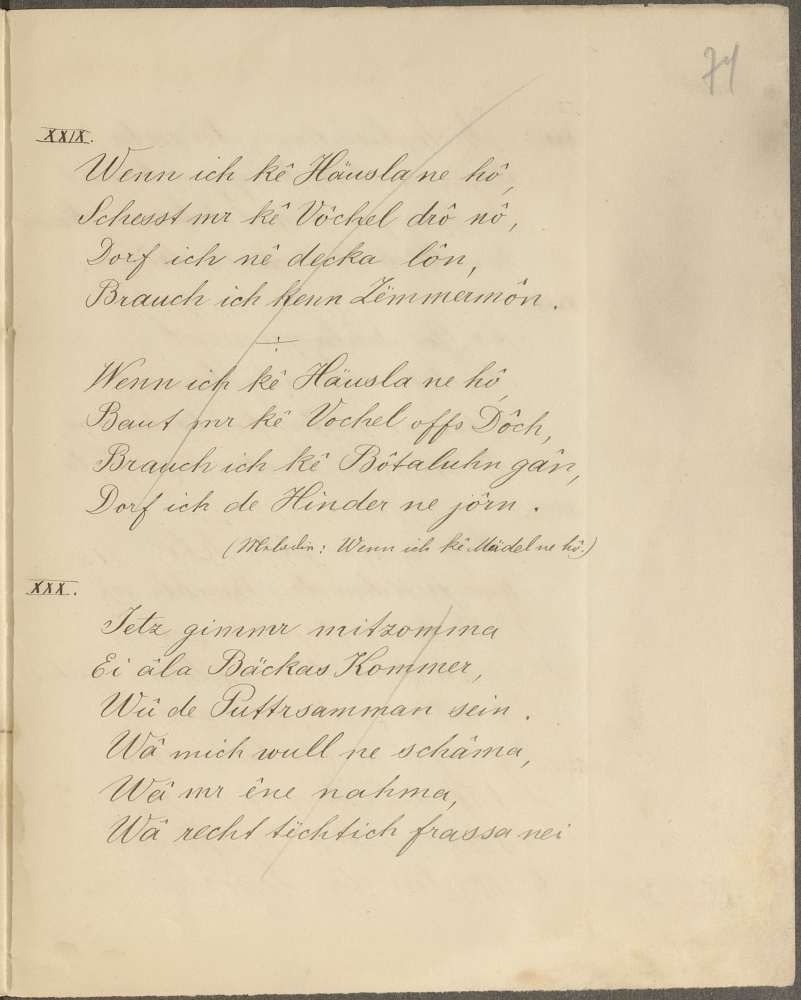 74
XXIX.
Wenn ich kê Häusla ne hô,
Schesst mr kê Vôchel drô nô,
Dorf ich nê decka lôn,
Brauch ich kenn Zëmmermôn.
Wenn ich kê Häusla ne hô,
Baut mr kê Vochel offs Dôch,
Brauch ich kê Bôtaluhn gân,
Dorf ich de Hinder ne jôrn.
(Melodie: Wenn ich kê Mädel ne hô.)
XXX.
Jetz gimmr mitzomma
Ei âla Bäckas Kommer,
Wû de Puttrsamman sein.
Wâ mich wull ne schâma,
Wâ mr êne nahma,
Wâ recht tëchtich frassa nei